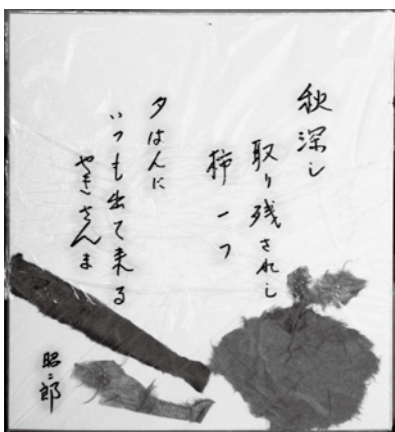 秋深し
取り残されし
柿一つ
夕はんに
いつも出て来る
やきさんま
昭二郎